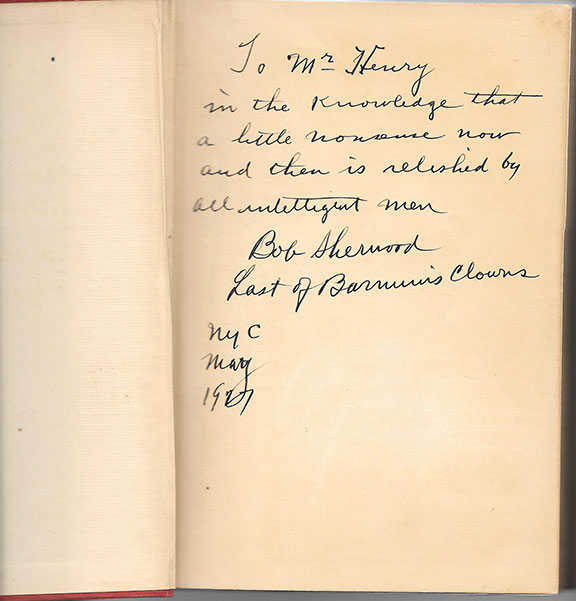 To Mr Henry
in the Knowledge that
a little nonsense now
and then is relished by
all intelligent men
Bob Sherwood
Last of Barnum's Clowns
NyC
May
1927